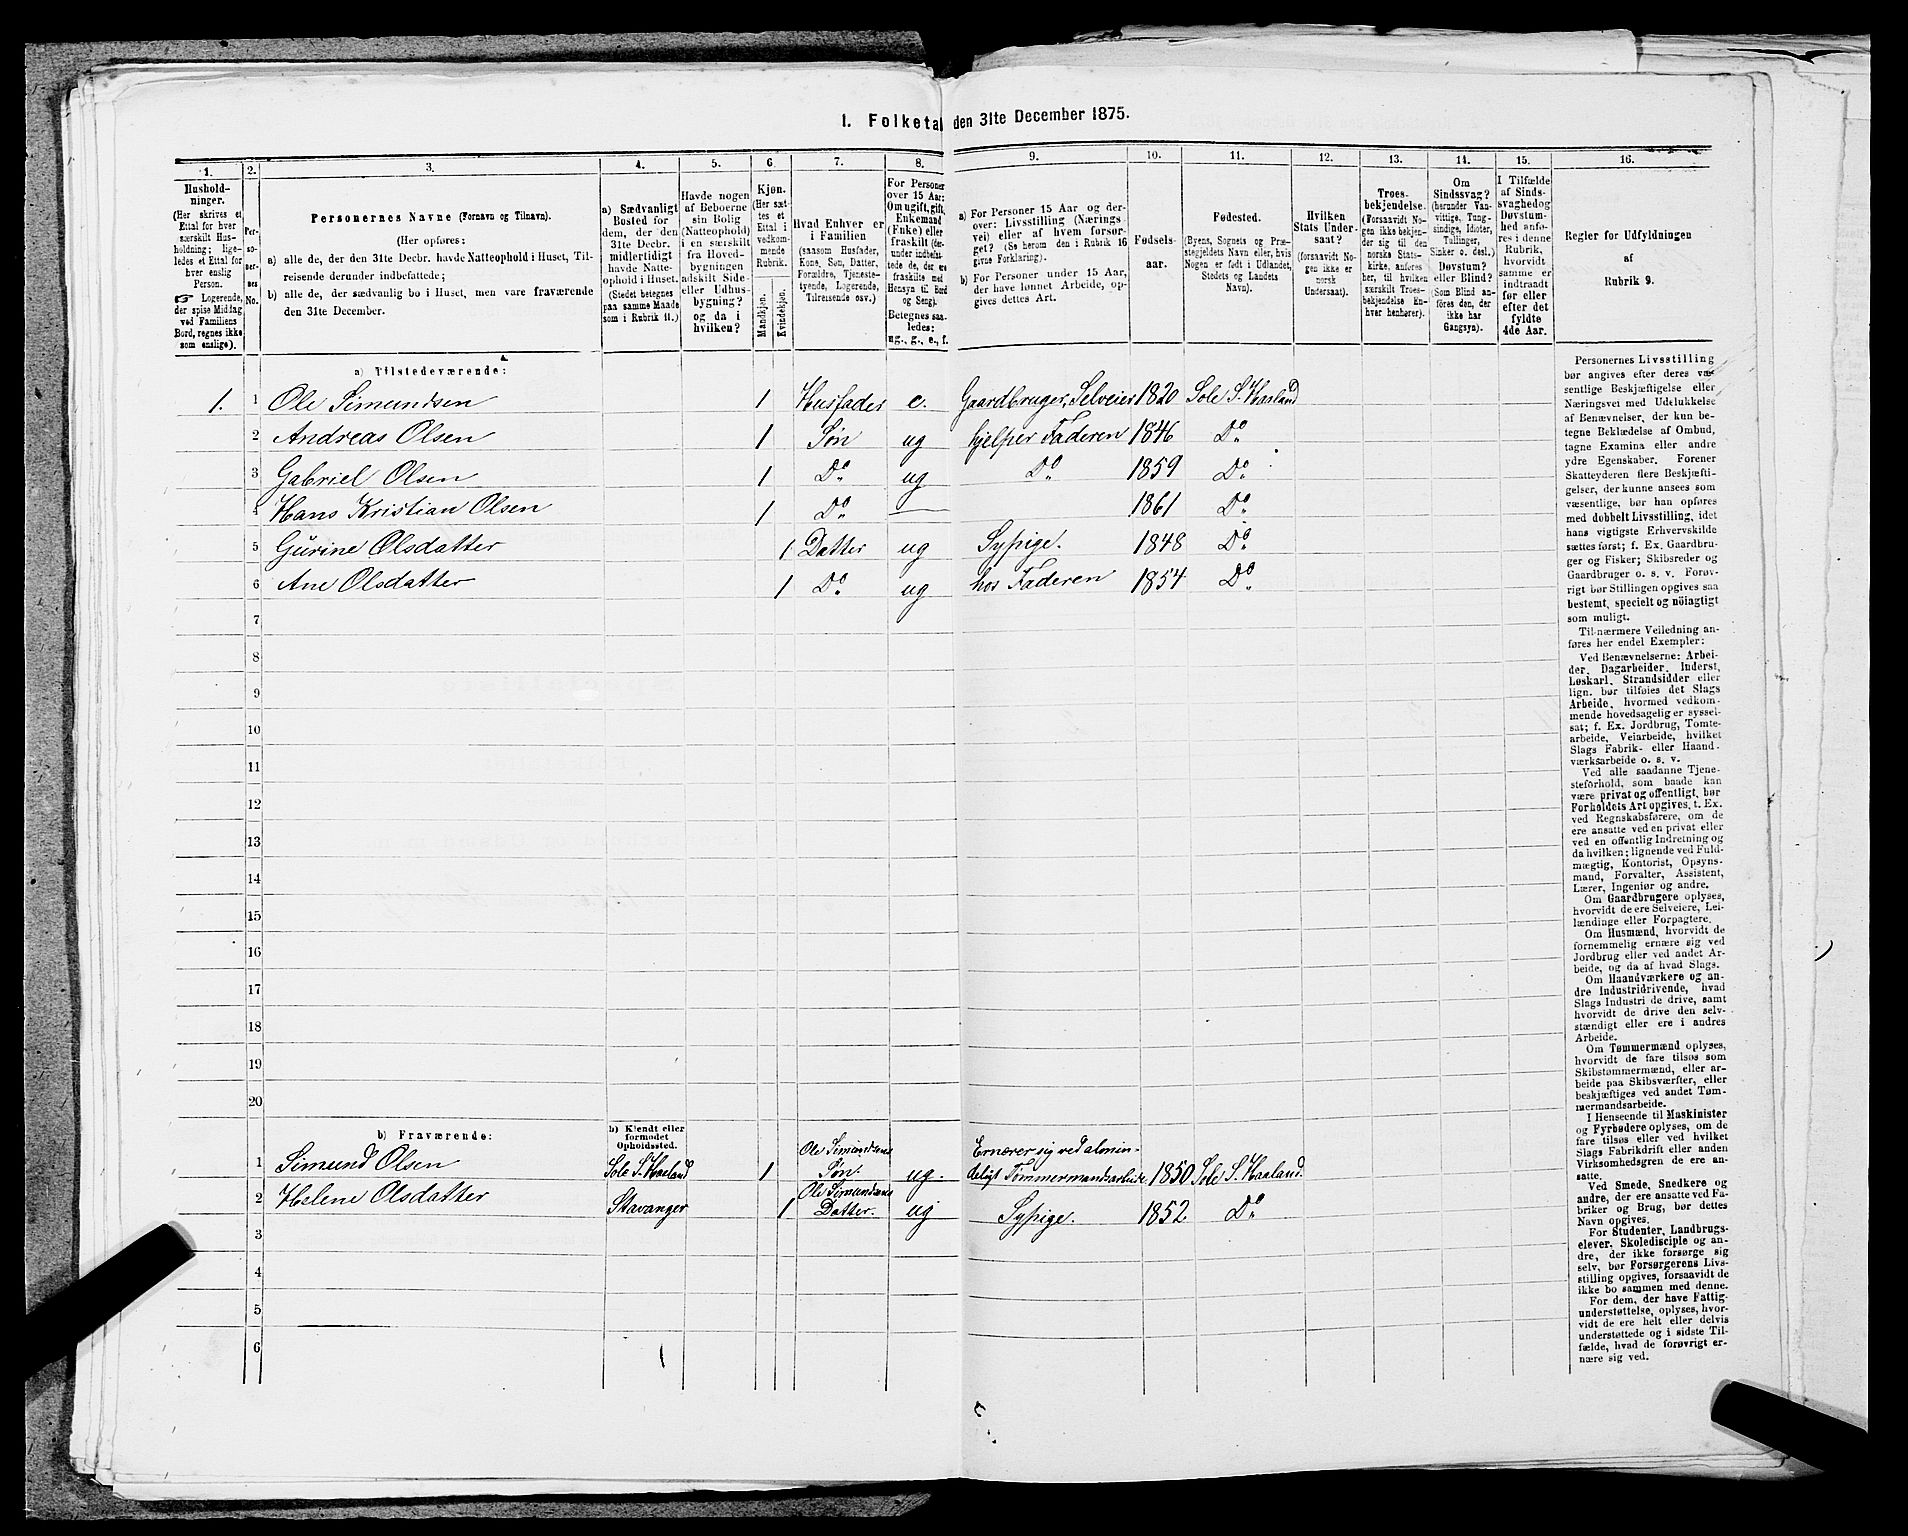 I. Folketal den 31te December 1875.
1. 2. 3. 4. 5. 6. 7. 8. 9. 10. 11. 12. 13. 14. 15. 16.
Hushold-
ninger.
(Her skrives et
Ettal for hver
særskilt Hus-
holdning; lige-
ledes et Ettal for
hver enslig
Person.
☞ Logerende,
der spise Middag
ved Familiens
Bord, regnes ikke
som enslige).
Per-
so-
ner-
nes
No.
Personernes Navne (Fornavn og Tilnavn).
(Her opføres:
a) alle de, der den 31te Decbr. havde Natteophold i Huset, Til-
reisende derunder indbefattede;
b) alle de, der sædvanlig bo i Huset, men vare fraværende
den 31te December.
a) Sædvanligt
Bosted for
dem, der den
31te Decbr.
midlertidigt
havde Natte-
ophold i Huset.
(Stedet betegnes
paa samme Maade
som i Rubrik 11.)
Havde nogen
af Beboerne
sin Bolig
(Natteophold)
i en særskilt
fra Hoved-
bygningen
adskilt Side-
eller Udhus-
bygning?
og da i
hvilken?
Kjøn.
(Her sæt-
tes et
Ettal i
vedkom-
mende
Rubrik.
Mandkjøn.
Kvindekjøn.
Hvad Enhver er
i Familien
(saasom Husfader,
Kone, Søn, Datter,
Forældre, Tjeneste-
tyende, Logerende,
Tilreisende osv.)
For Personer
over 15 Aar:
Om ugift, gift,
Enkemand
(Enke) eller
fraskilt (der-
under indbefat-
tede de, der ere
fraskilte med
Hensyn til Bord
og Seng).
Betegnes saa-
ledes:
ug., g., e., f.
a) For Personer 15 Aar og der-
over: Livsstilling (Nærings-
vei) eller af hvem forsør-
get? (Se herom den i Rubrik 16
givne Forklaring).
b) For Personer under 15 Aar,
der have lønnet Arbeide, op-
gives dettes Art.
Fødsels-
aar.
Fødested.
(Byens, Sognets og Præ-
stegjeldets Navn eller, hvis
Nogen er født i Udlandet,
Stedets og Landets
Navn).
Hvilken
Stats Under-
saat?
(forsaavidt No-
gen ikke er
norsk
Undersaat).
Troes-
bekjendelse.
(Forsaavidt No-
gen ikke bekjen-
der sig til den
norske Stats-
kirke, anføres
her, til hvilken
særskilt Troes-
bekjendelse En-
hver henhører).
Om
Sindssvag?
(herunder Van-
vittige, Tung-
sindige, Idioter,
Tullinger,
Sinker o. desl.)
Døvstum?
eller Blind?
(Som Blind an-
føres den, der
ikke har
Gangsyn).
I Tilfælde
af Sinds-
svaghed og
Døvstum-
hed anfø-
res i denne
Rubrik,
hvorvidt
samme er
indtraadt
før eller
efter det
fyldte
4de Aar.
Regler for Udfyldningen
af
Rubrik 9.
a) Tilstedeværende:
1. 1 Ole Simundsen 1 Husfader e. Gaardbruger, Selveier 1820 Sole S. Haaland
2 Andreas Olsen 1 Søn ug hjelper Faderen 1846 Do
3 Gabriel Olsen 1 Do ug Do 1859 Do
4 Hans Kristian Olsen 1 Do — 1861 Do
5 Gurine Olsdatter 1 Datter ug Sypige. 1848 Do
6 Ane Olsdatter 1 Do ug hos Faderen 1854 Do
7
8
9
10
11
12
13
14
15
16
17
18
19
20
b) Fraværende:
b) Kjendt eller
formodet
Opholdssted.
1 Simund Olsen Sole S. Haaland 1 Ole Simundsens Søn. ug. Ernærer sig ved almin-
deligt Tømmermandsarbeide 1850 Sole S. Haaland.
2 Helene Olsdatter Stavanger 1 Ole Simundsens Datter. ug Sypige. 1852 Do
3
4
5
6
Personernes Livsstilling
bør angives efter deres væ-
sentlige Beskjæftigelse eller
Næringsvei med Udelukkelse
af Benævnelser, der kun be-
tegne Beklædelse af Ombud,
tagne Examina eller andre
ydre Egenskaber. Forener
Skatteyderen flere Beskjæfti-
gelser, der kunne ansees som
væsentlige, bør han opføres
med dobbelt Livsstilling, idet
hans vigtigste Erhvervskilde
sættes først; f. Ex. Gaardbru-
ger og Fisker; Skibsreder og
Gaardbruger o. s. v. Forøv-
rigt bør Stillingen opgives saa
bestemt, specielt og nöiagtigt
som muligt.
Til nærmere Veiledning an-
føres her endel Exempler:
Ved Benævnelserne: Arbei-
der, Dagarbeider, Inderst,
Løskarl, Strandsidder eller
lign. bør tilføies det Slags
Arbeide, hvormed vedkom-
mende hovedsagelig er syssel-
sat; f. Ex. Jordbrug, Tomte-
arbeide, Veiarbeide, hvilket
Slags Fabrik- eller Haand-
værksarbeide o. s. v.
Ved alle saadanne Tjene-
steforhold, som baade kan
være privat og offentligt, bør
Forholdets Art opgives, t. Ex.
ved Regnskabsførere, om de
ere ansatte ved en privat eller
ved en offentlig Indretning og
da hvilken; lignende ved Fuld-
mægtig, Kontorist, Opsyns-
mand, Forvalter, Assistent,
Lærer, Ingeniør og andre.
Om Gaardbrugere oplyses,
hvorvidt de ere Selveiere, Lei-
lændinge eller Forpagtere.
Om Husmænd, hvorvidt de
fornemmelig ernære sig ved
Jordbrug eller ved andet Ar-
beide, og da af hvad Slags.
Om Haandværkere og an-
dre Industridrivende, hvad
Slags Industri de drive, samt
hvorvidt de drive den selv-
stændigt eller ere i andres
Arbeide.
Om Tømmermænd oplyses,
hvorvidt de fare tilsøs som
Skibstømmermænd, eller ar-
beide paa Skibsværfter, eller
beskjæftiges ved andet Tøm-
mermandsarbeide.
I Henseende til Maskinister
og Fyrbødere oplyses, om de
fare tilsøs eller ved hvilket
Slags Fabrikdrift eller anden
Virksomhedsgren de ere an-
satte.
Ved Smede, Snedkere og
andre, der ere ansatte ved Fa-
briker og Brug, bør dettes
Navn opgives.
For Studenter, Landbrugs-
elever, Skoledisciple og an-
dre, der ikke forsørge sig
selv, bør Forsørgerens Livs-
stilling opgives, forsaavidt de
ikke bo sammen med denne.
For dem, der have Fattig-
understøttelse, oplyses, hvor-
vidt de ere helt eller delvis
understøttede og i sidste Til-
fælde, hvad de forøvrigt er-
nære sig ved.